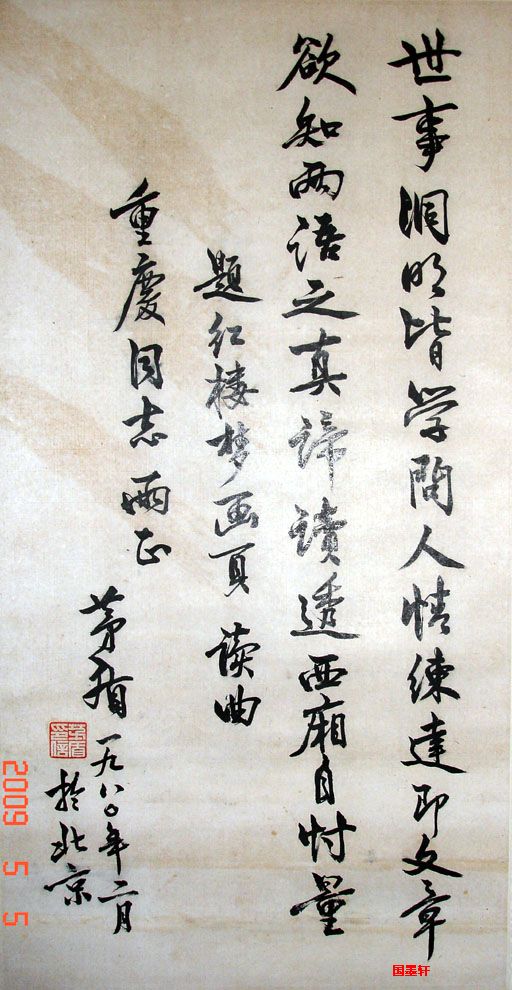 世事洞明皆学问人情练达即文章
欲知两语之真谛读透西厢自忖量
题红楼梦画页 读曲
重慶同志两正
茅盾 一九八〇年二月
於北京
茅盾
印信
2009 5 5
国墨轩